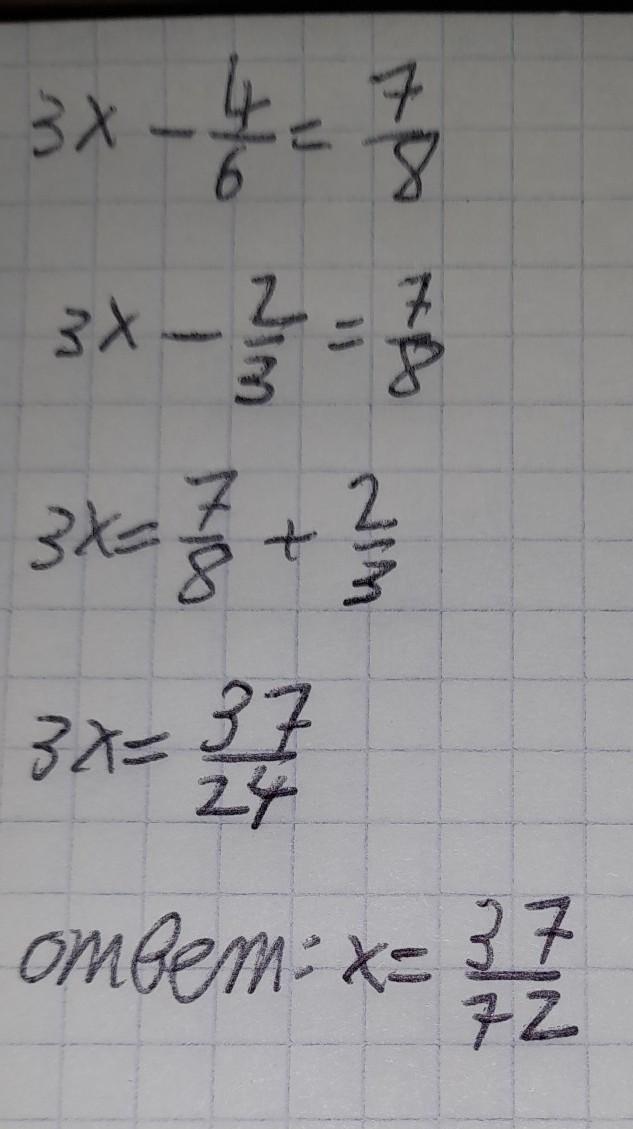 3x - 4/6 = 7/8
3x - 2/3 = 7/8
3x = 7/8 + 2/3
3x = 37/24
ответ: x = 37/72